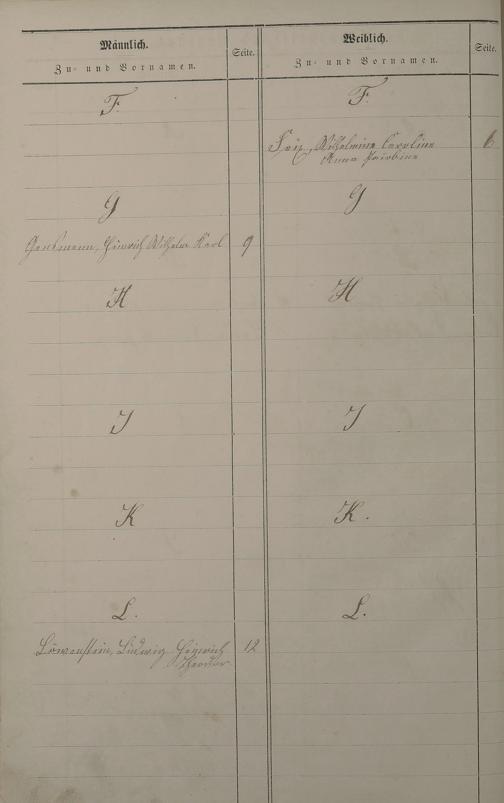 Männlich.
Zu- und Vornamen.
Seite.
Weiblich.
Zu- und Vornamen.
Seite.
F.
F.
Wilhelmine Caroline
Anna
6
G
G
Heinrich Wilhelm Karl
9
H
H
J
J
K
K.
L.
L.
Löwenstein, Ludwig Heinrich
Theodor
12